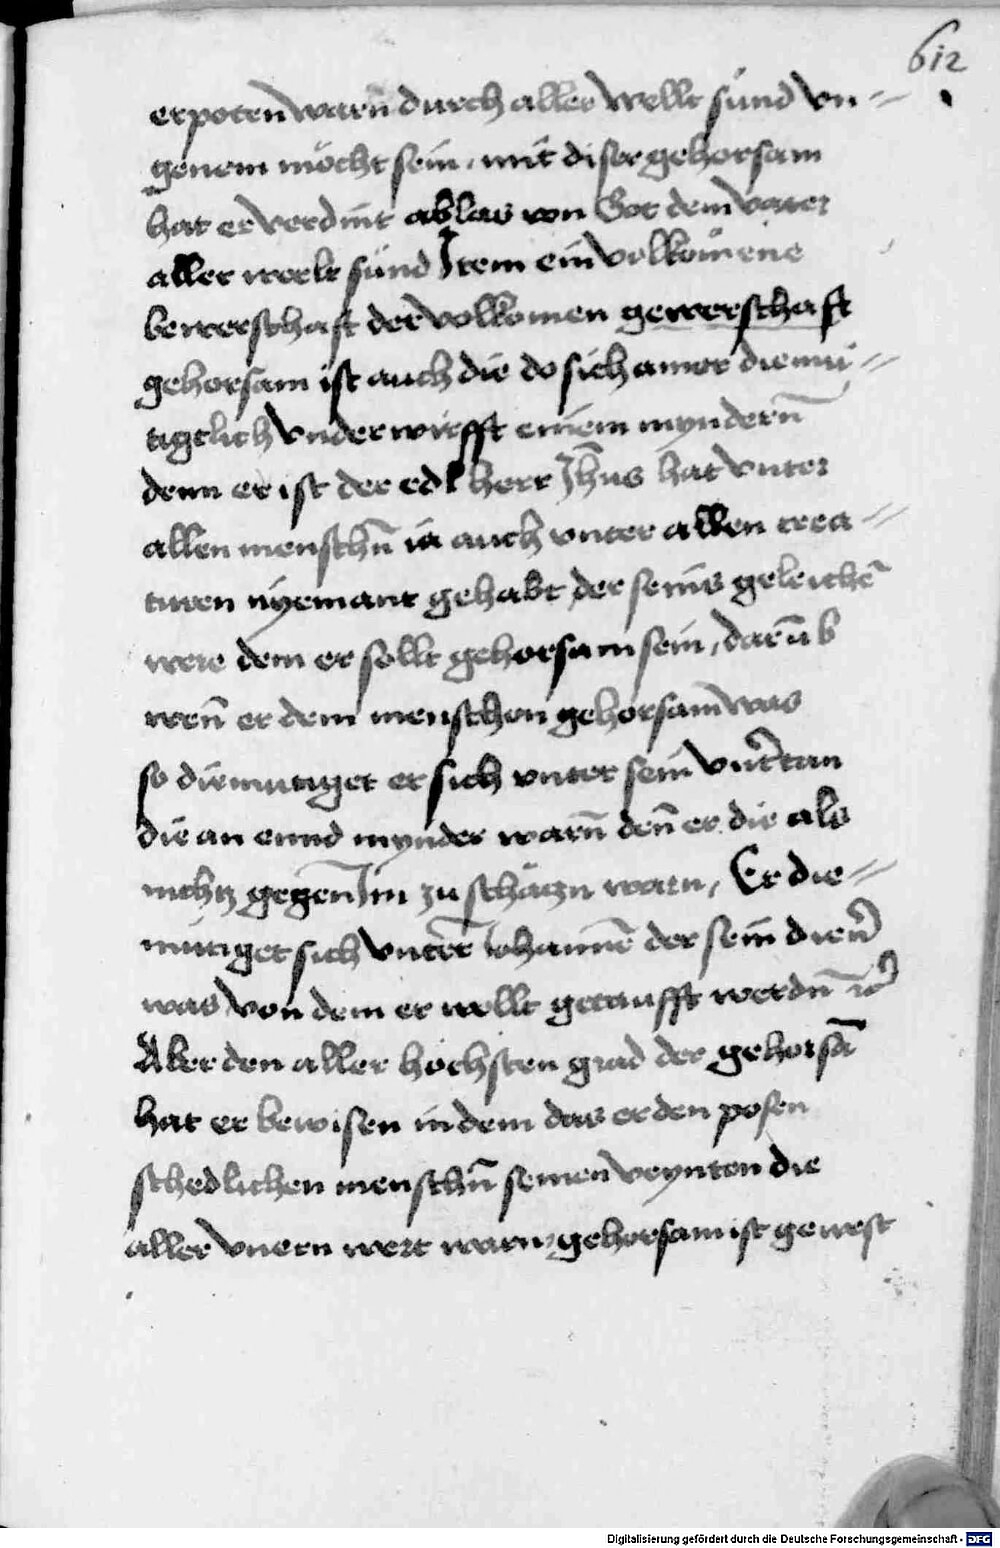 612
erpoten warn durch aller wellt sünd vn=
genem möcht sein, mit diser gehorsam
hat er verdint ablas von Got dem vater
aller welt sünd Item ein volkom̄ene
bewerschaft der volkomen gewerschaft
gehorsam ist auch die do sich diemü=
tigclich vnderwirfft einem myndern̄
denn er ist der edl herr Jh̄us hat vnter
allen menschn̄ ia auch vnter allen crea=
turen nyemant gehabt der seins geleichē
were dem er söllt gehorsam sein, darūb
wen̄ er dem menschen gehorsam was
so diemutiget er sich vnter sein vnt̄tan
die an ennd mynder warn̄ den̄ er die als
nichtz gegen Im zu schätzn warn, Er die=
mütiget sich vnter Johannē der sein dien̄
was von dem er wollt getaufft werdn̄ ꝛc
Aber den aller höchsten grad der gehorsā
hat er bewisen in dem das er den posen
schedlichen menschn̄ seinen veynten die
aller vnern wert warn gehorsam ist gewest
Digitalisierung gefördert durch die Deutsche Forschungsgemeinschaft - DFG